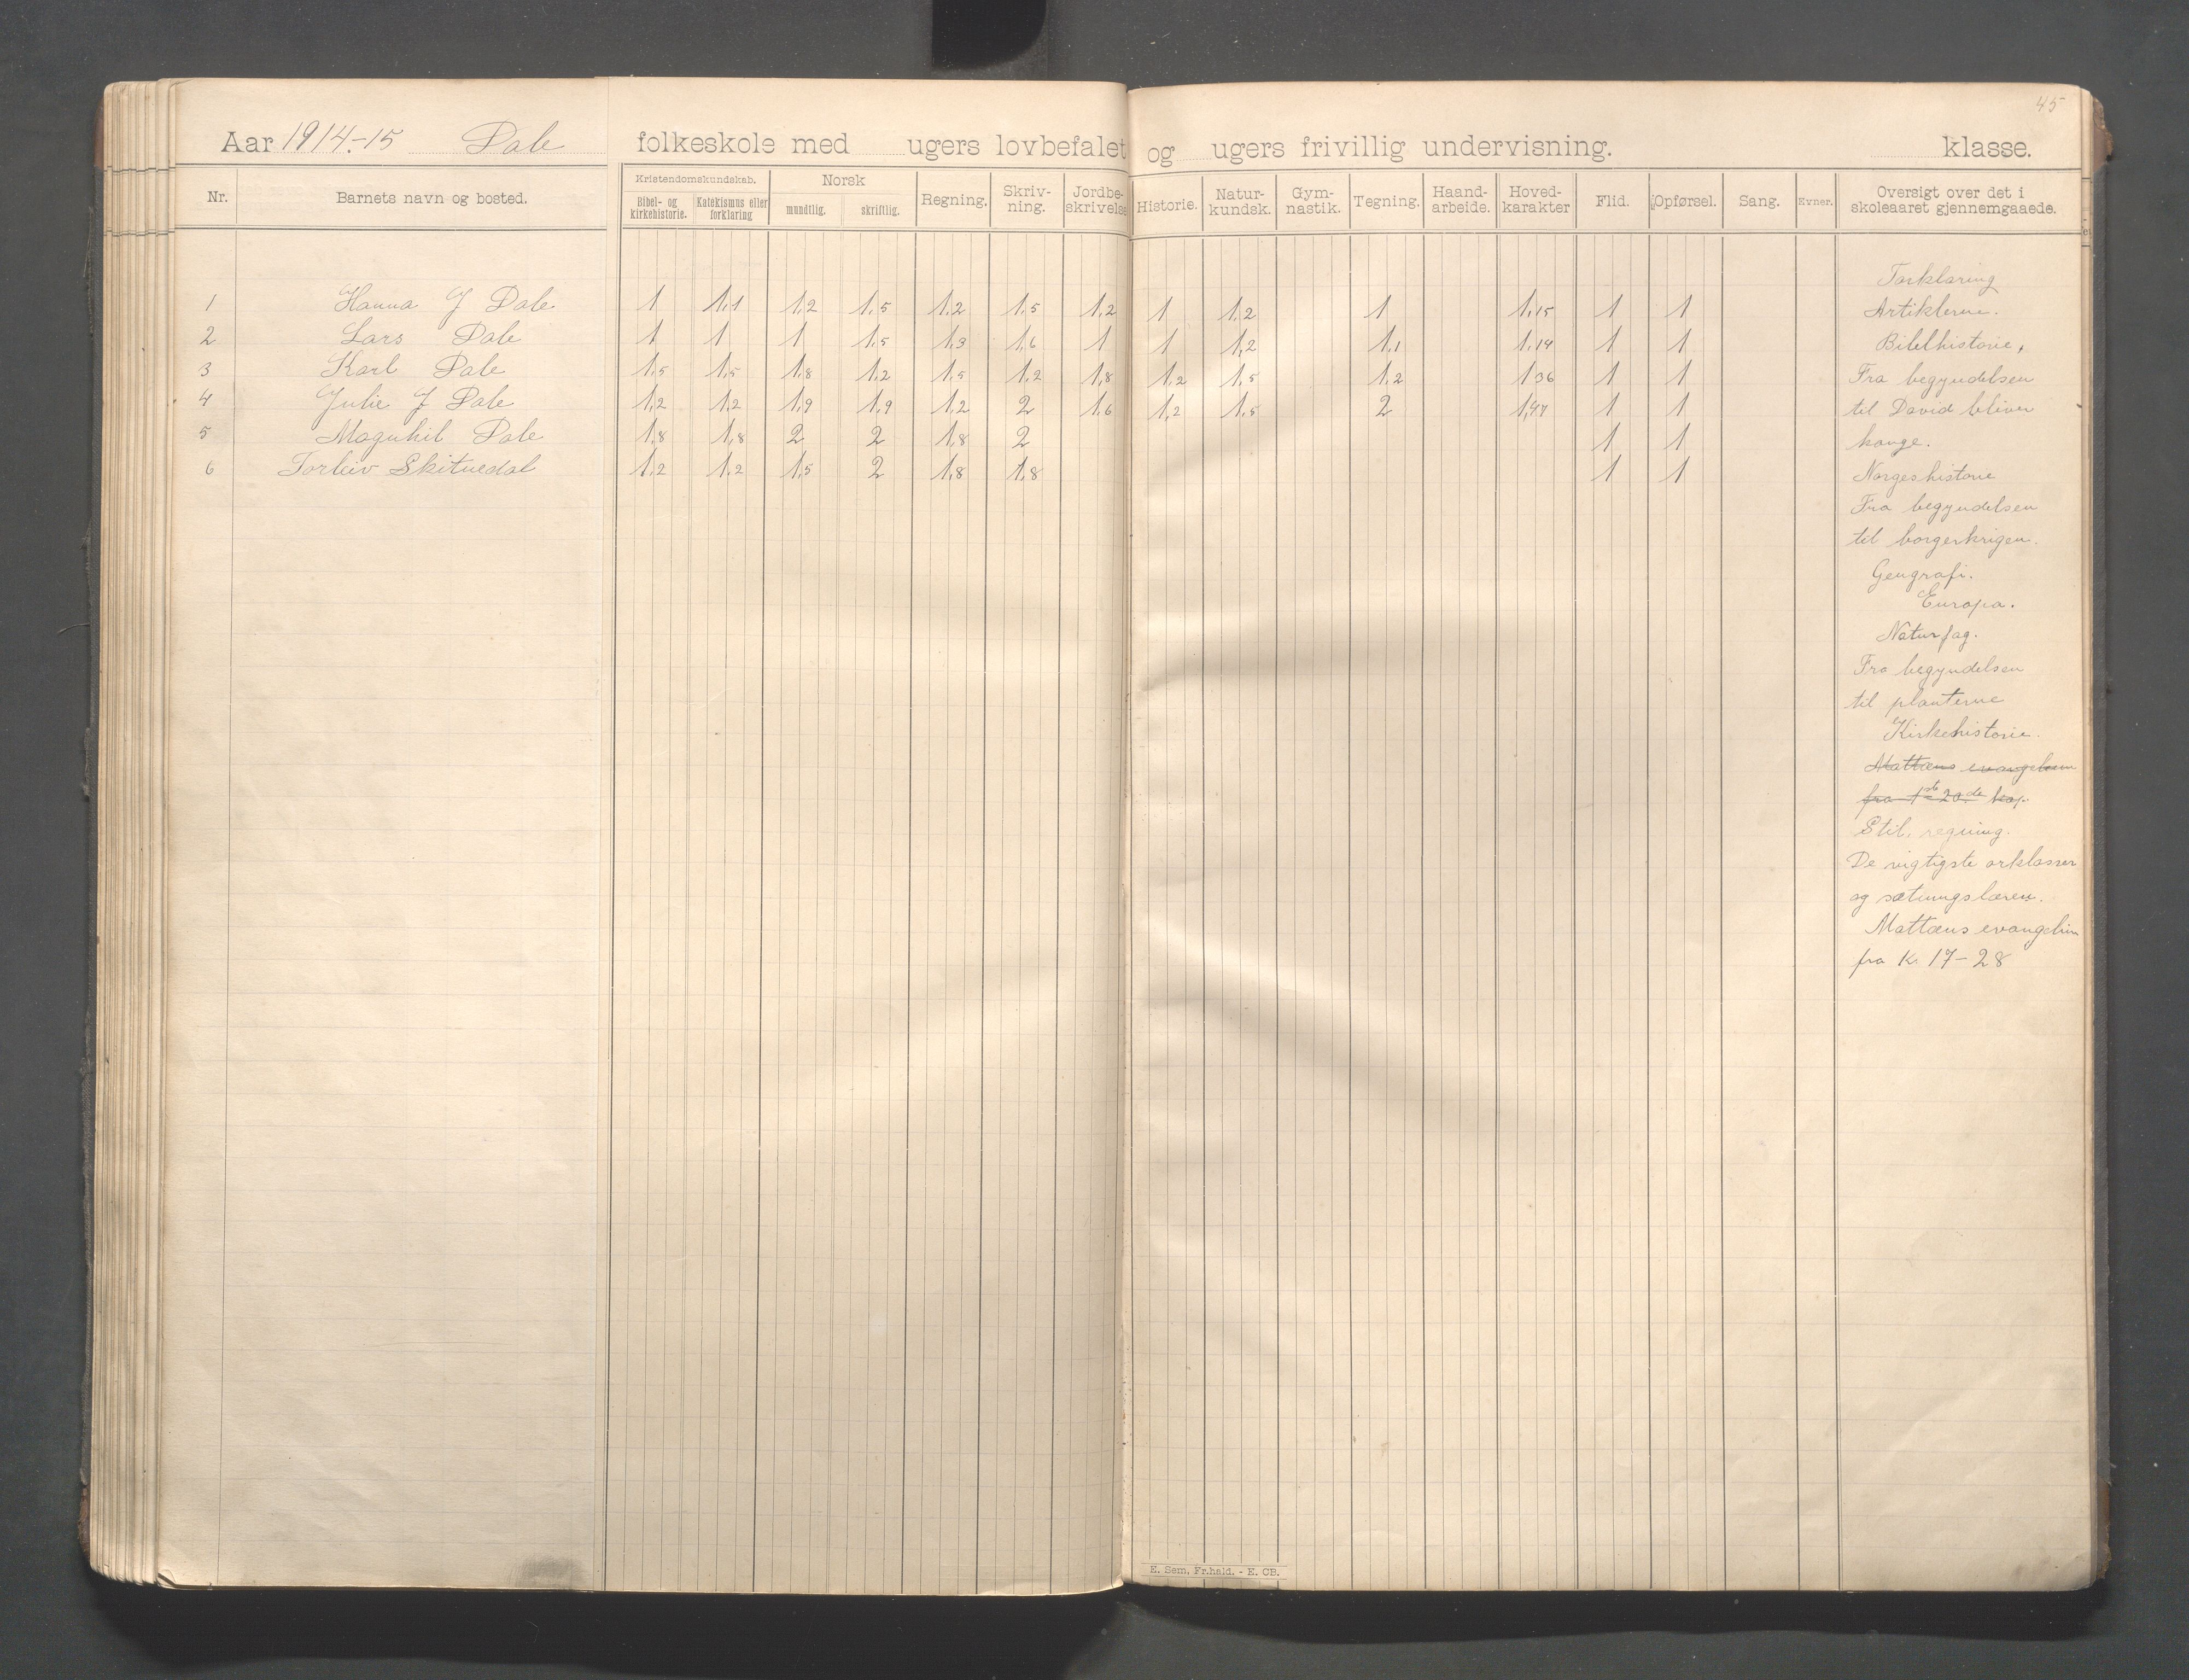 45
Aar 1914-15 Dale folkeskole med ugers lovbefalet og ugers frivillig undervisning. klasse.
Nr. Barnets navn og bosted. Kristendomskundskab. Bibel- og kirkehistorie. Katekismus eller forklaring Norsk mundtlig. skriftlig. Regning. Skriv-ning. Jordbe-skrivelse Historie. Natur-kundsk. Gym-nastik. Tegning. Haand-arbeide. Hoved-karakter Flid. Opførsel. Sang. Evner. Oversigt over det i skoleaaret gjennemgaaede.
1 Hanna J Dale 1 1,1 1,2 1,5 1,2 1,5 1,2 1 1,2 1 1,15 1 1
2 Lars Dale 1 1 1 1,5 1,3 1,6 1 1 1,2 1,1 1,14 1 1
3 Karl Dale 1,5 1,5 1,8 1,2 1,5 1,2 1,8 1,2 1,5 1,2 1,36 1 1
4 Julie J Dale 1,2 1,2 1,9 1,9 1,2 2 1,6 1,2 1,5 2 1 1
5 Magnhil Dale 1,8 1,8 2 2 1,8 2 1 1
6 Torleiv Skitnedal 1,2 1,2 1,5 2 1,8 1,8 1 1
Forklaring
Artiklerne.
Bibelhistorie,
Fra begyndelsen
til David bliver
konge.
Norgeshistorie
Fra begyndelsen
til borgerkrigen.
Geografi.
Europa.
Naturfag.
Fra begyndelsen
til planterne
Kirkehistorie.
Mattæus evangelium
fra 1ste 20de kap.
Stil, regning.
De vigtigste orklasser
og sætningslæren.
Mattæus evangelium
fra K. 17-28
E. Sem, Fr.hald. - E. CB.